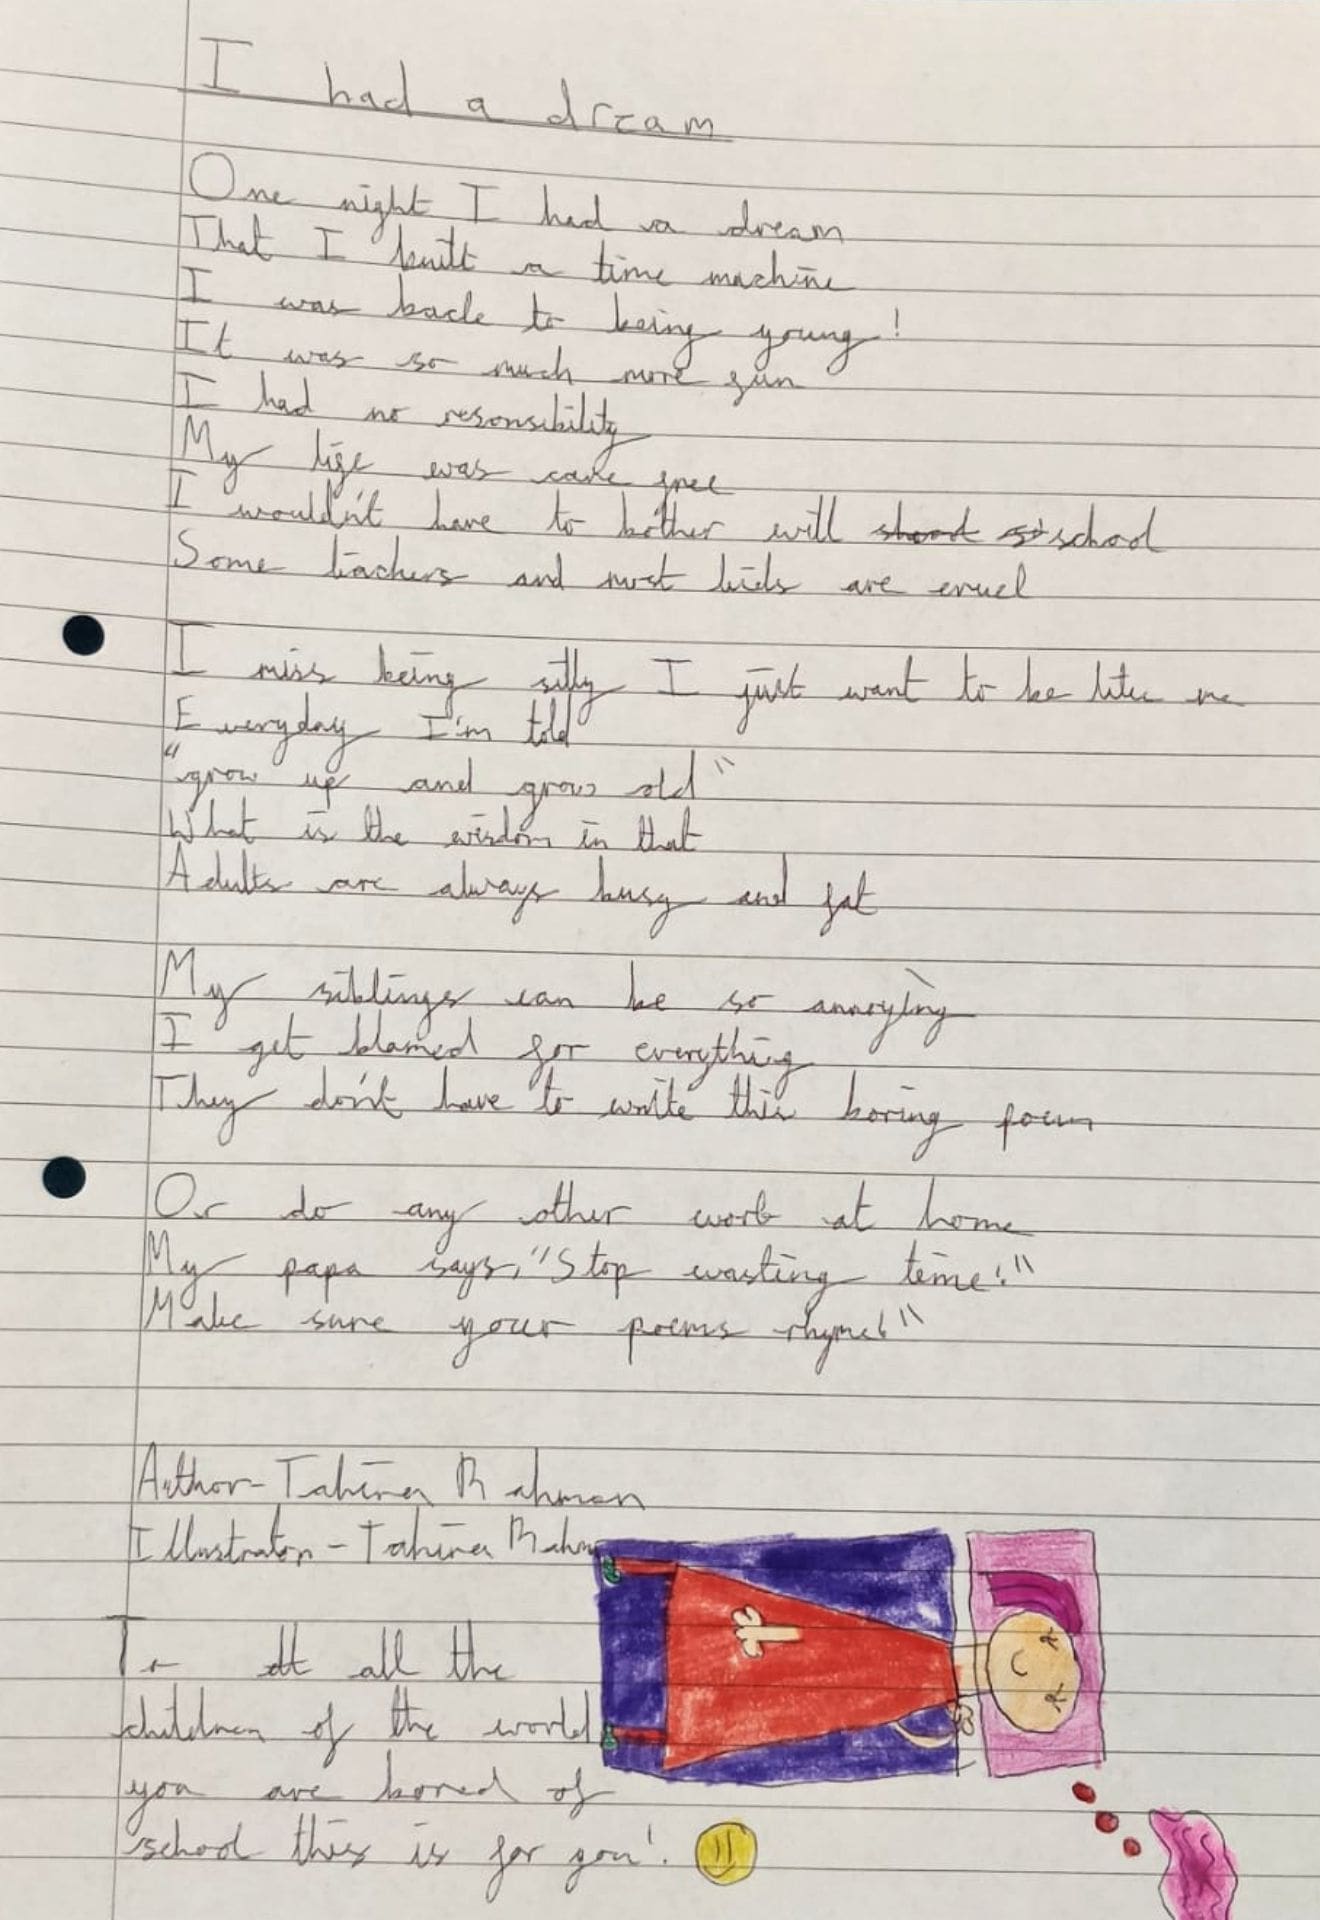 I had a dream
One night I had a dream
That I built a time machine
I was back to being young!
It was so much more fun
I had no resonsibility
My life was care free
I wouldn't have to bother will school
Some teachers and most kids are cruel
I miss being silly I just want to be like me
Everyday I'm told
"grow up and grow old"
What is the wisdom in that
Adults are always busy and fat
My siblings can be so annoying
I get blamed for everything
They don't have to write this boring poem
Or do any other work at home
My papa says, "Stop wasting time!"
Make sure your poems rhyme!"
Author - Tahira Rahman
Illustrator - Tahira Rahm
To all the
children of the world
you are bored of
school this is for you!